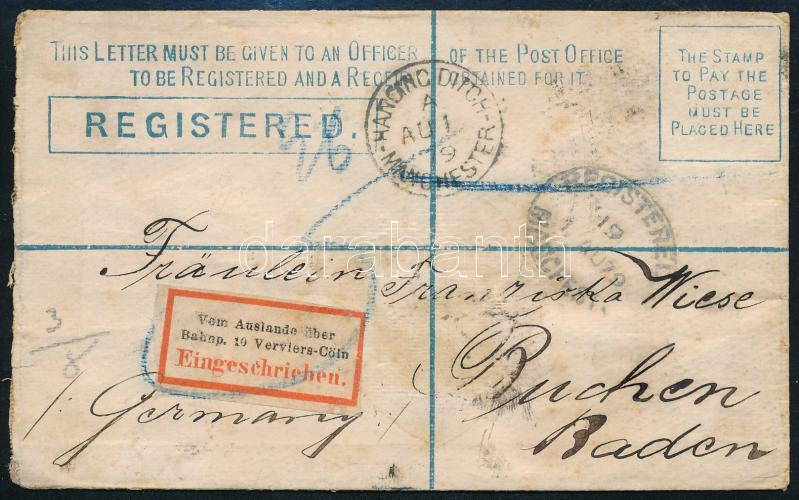 THIS LETTER MUST BE GIVEN TO AN OFFICER OF THE POST OFFICE
TO BE REGISTERED AND A RECEIPT OBTAINED FOR IT.
THE STAMP
TO PAY THE
POSTAGE
MUST BE
PLACED HERE
REGISTERED.
HANGING DITCH
A
AU 1
9
MANCHESTER
REGISTERED
Fräulein Franziska Wiese
Vom Auslande über
Bahnp. 10 Verviers-Cöln
Eingeschrieben.
3/8
Buchen
/Germany/
Baden
darabanth